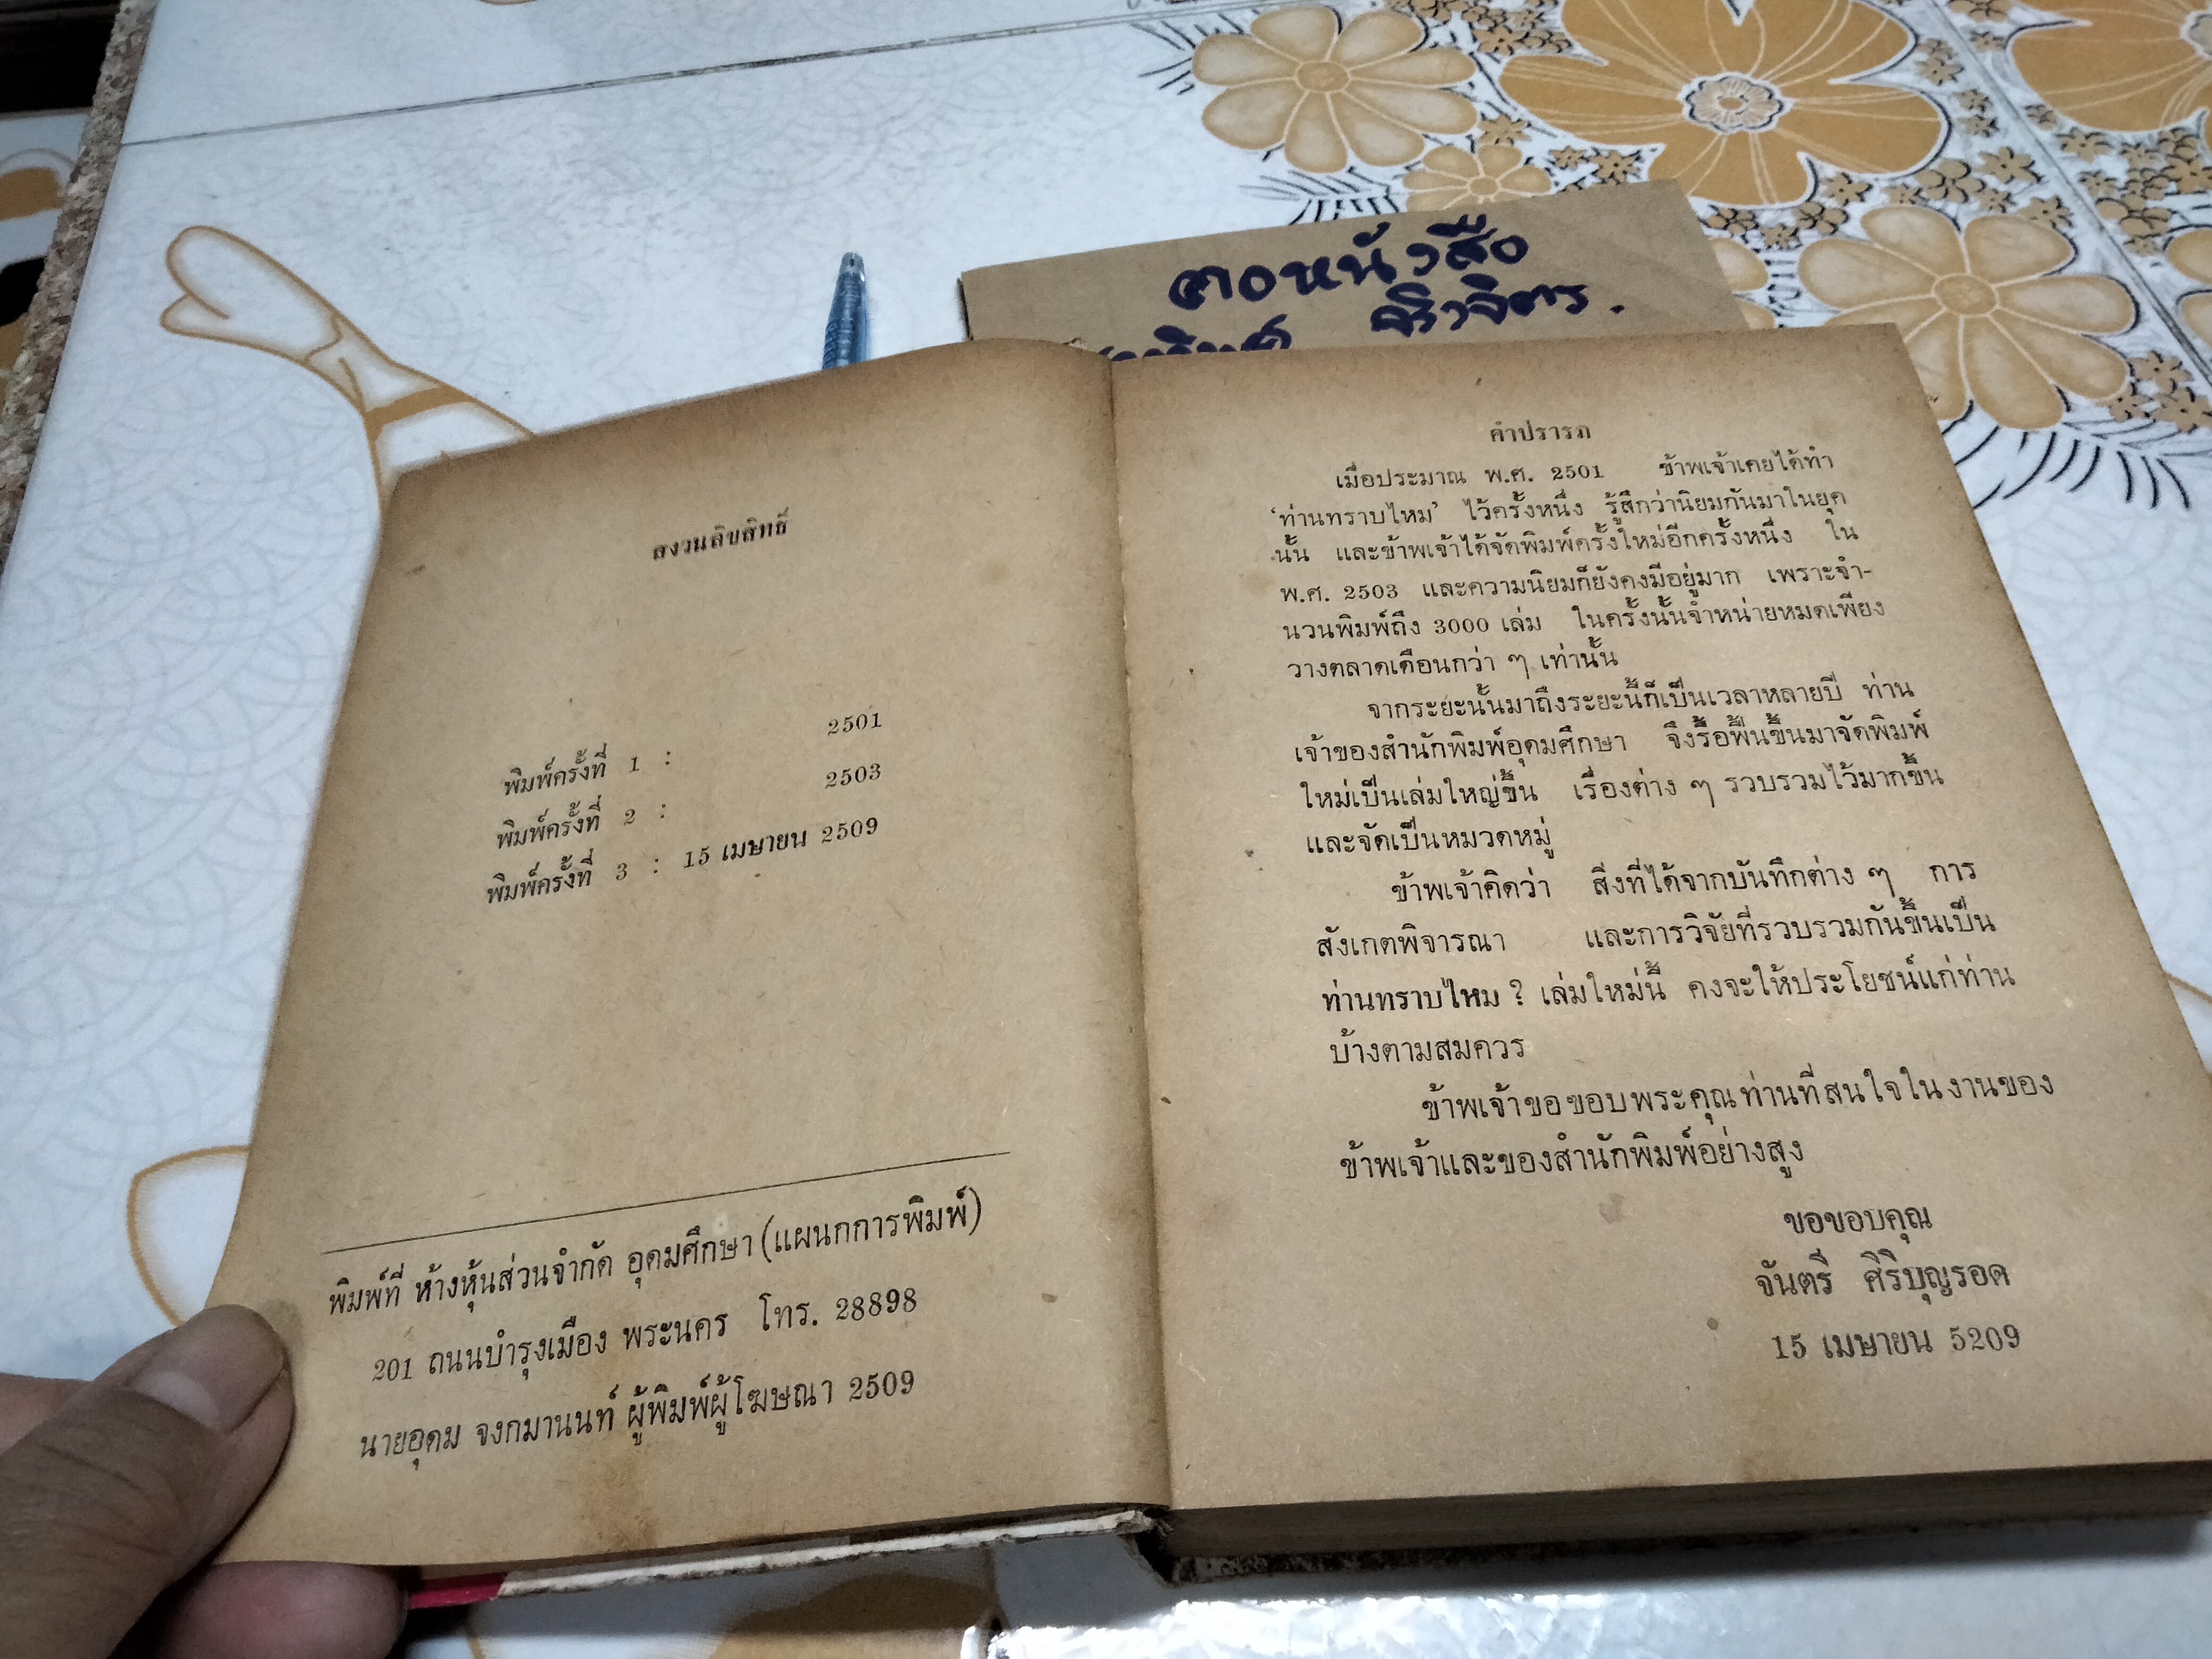 ฅอหนังสือ
จิวจิตร.
สงวนลิขสิทธิ์
พิมพ์ครั้งที่ 1 : 2501
พิมพ์ครั้งที่ 2 : 2503
พิมพ์ครั้งที่ 3 : 15 เมษายน 2509
พิมพ์ที่ ห้างหุ้นส่วนจำกัด อุดมศึกษา (แผนกการพิมพ์)
201 ถนนบำรุงเมือง พระนคร โทร. 28898
นายอุดม จงกมานนท์ ผู้พิมพ์ผู้โฆษณา 2509
คำปรารภ
เมื่อประมาณ พ.ศ. 2501 ข้าพเจ้าเคยได้ทำ
‘ท่านทราบไหม’ ไว้ครั้งหนึ่ง รู้สึกว่านิยมกันมาในยุค
นั้น และข้าพเจ้าได้จัดพิมพ์ครั้งใหม่อีกครั้งหนึ่ง ใน
พ.ศ. 2503 และความนิยมก็ยังคงมีอยู่มาก เพราะจำ-
นวนพิมพ์ถึง 3000 เล่ม ในครั้งนั้นจำหน่ายหมดเพียง
วางตลาดเดือนกว่า ๆ เท่านั้น
จากระยะนั้นมาถึงระยะนี้ก็เป็นเวลาหลายปี ท่าน
เจ้าของสำนักพิมพ์อุดมศึกษา จึงรื้อฟื้นขึ้นมาจัดพิมพ์
ใหม่เป็นเล่มใหญ่ขึ้น เรื่องต่าง ๆ รวบรวมไว้มากขึ้น
และจัดเป็นหมวดหมู่
ข้าพเจ้าคิดว่า สิ่งที่ได้จากบันทึกต่าง ๆ การ
สังเกตพิจารณา และการวิจัยที่รวบรวมกันขึ้นเป็น
ท่านทราบไหม ? เล่มใหม่นี้ คงจะให้ประโยชน์แก่ท่าน
บ้างตามสมควร
ข้าพเจ้าขอขอบพระคุณท่านที่สนใจในงานของ
ข้าพเจ้าและของสำนักพิมพ์อย่างสูง
ขอขอบคุณ
จันตรี ศิริบุญรอด
15 เมษายน 5209